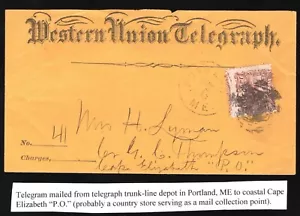 Western Union Telegraph.
ME.
Mrs H. Lyman
41
No.
Cr. G. C. Thompson
Charges,
Cape Elizabeth "P.O."
Telegram mailed from telegraph trunk-line depot in Portland, ME to coastal Cape
Elizabeth "P.O." (probably a country store serving as a mail collection point).